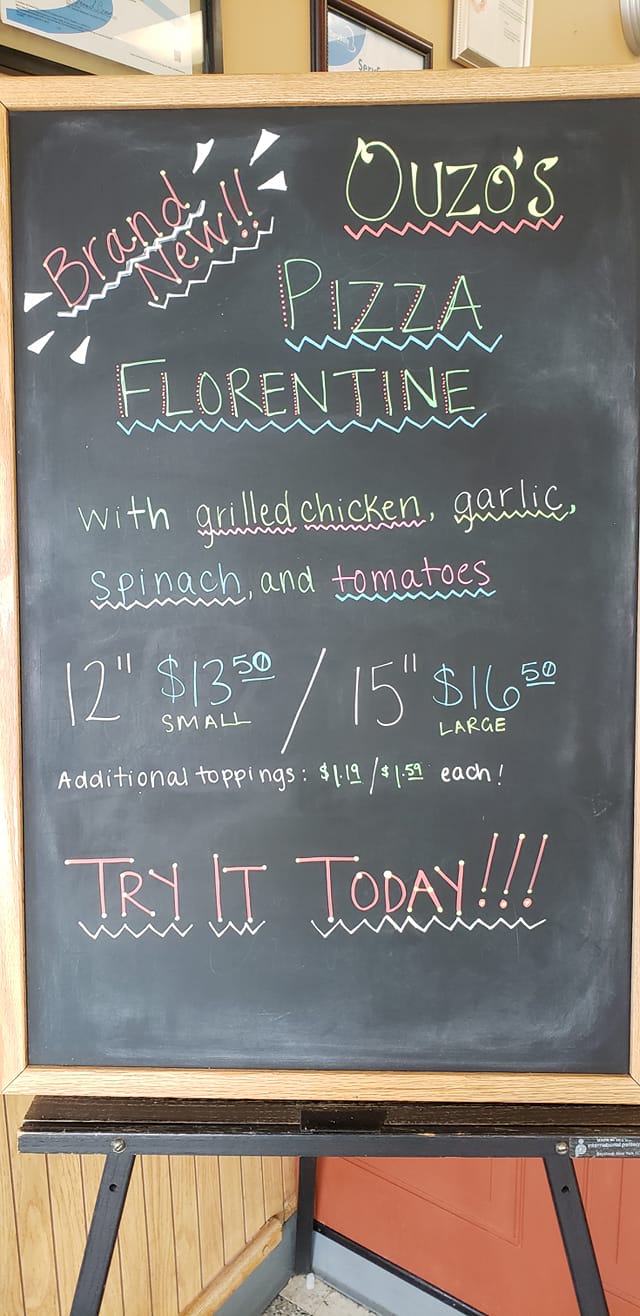 Brand
New!!
OUZO'S
PIZZA
FLORENTINE
with grilled chicken, garlic,
spinach, and tomatoes
12" $13.50 / 15" $16.50
SMALL LARGE
Additional toppings: $1.19/$1.59 each!
TRY IT TODAY!!!